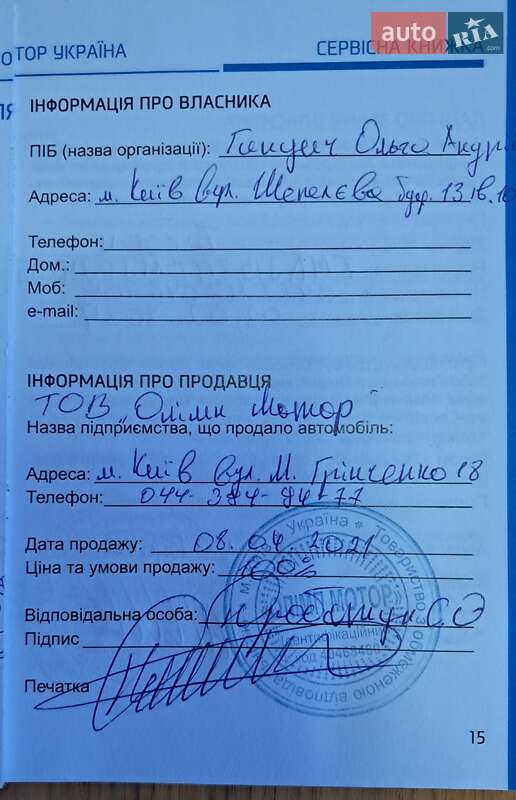 auto RIA.com
ТОР УКРАЇНА СЕРВІСНА КНИЖКА
ІНФОРМАЦІЯ ПРО ВЛАСНИКА
ПІБ (назва організації): Ольга Андрі
Адреса: м. Київ вул. Шепелєва буд. 13 кв. 10
Телефон:
Дом.:
Моб:
e-mail:
ІНФОРМАЦІЯ ПРО ПРОДАВЦЯ
ТОВ „Олімп Мотор"
Назва підприємства, що продало автомобіль:
Адреса: м. Київ вул. М. Грінченко 18
Телефон: 044-394-94-77
Дата продажу: 08.04.2021
Ціна та умови продажу: 100%
Відповідальна особа:
Підпис
Печатка
Україна * Товариство з обмеженою відповідал
ОЛІМП МОТОР
Ідентифікаційний
код
15